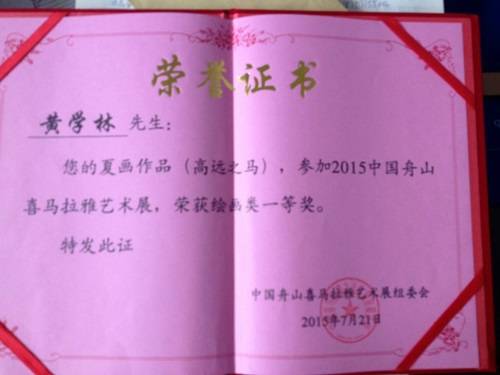 荣誉证书
黄学林 先生：
您的夏画作品（高远之马），参加2015中国舟山
喜马拉雅艺术展，荣获绘画类一等奖。
特发此证
中国舟山喜马拉雅艺术展组委会
2015年7月21日